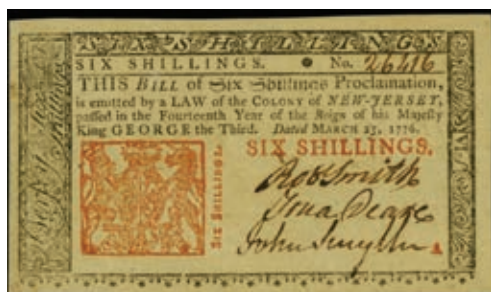 SIX SHILLINGS
SIX SHILLINGS. No. 26616
THIS BILL of Six Shillings Proclamation,
is emitted by a LAW of the COLONY of NEW-JERSEY,
passed in the Fourteenth Year of the Reign of his Majesty
King GEORGE the Third. Dated MARCH 25, 1776.
SIX SHILLINGS.
SIX SHILLINGS.
Smith
Jona Deare
John Smyth